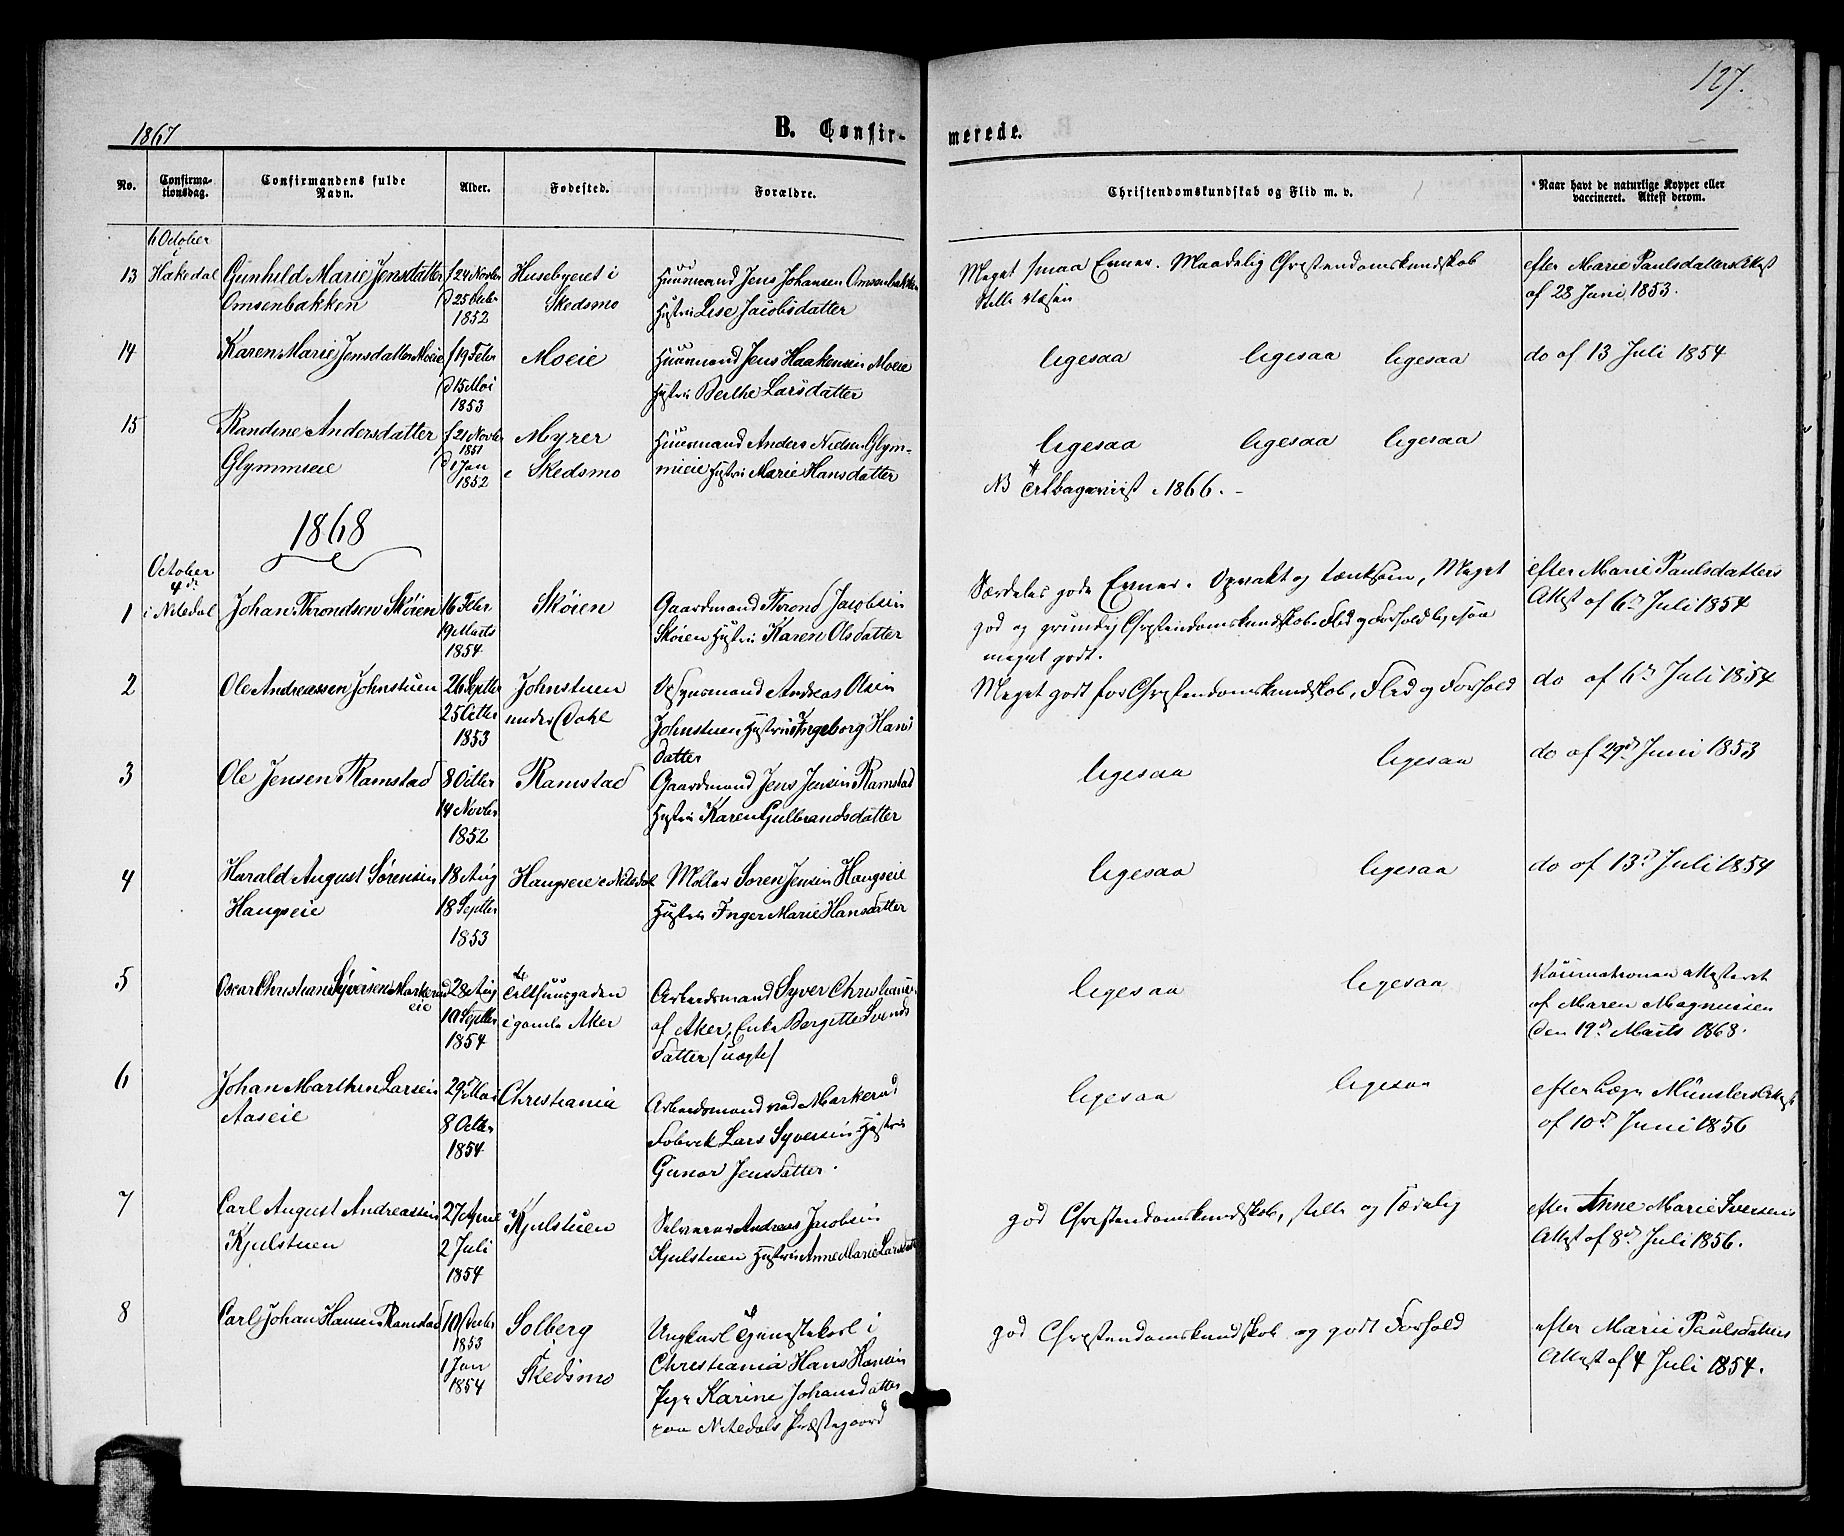 127.
1867
B. Confir-
merede.
No.
Confirma-
tionsdag.
Confirmandens fulde
Navn.
Alder.
Fødested.
Forældre.
Christendomskundskab og Flid m. v.
Naar havt de naturlige Kopper eller
vaccineret. Attest derom.
6 October
13 Hakedal Gunhild Marie Jensdatter f 24 Novbr Husebyeret i Huusmand Jens Johansen Omsenbakken Meget smaa Evner. Maadelig Christendomskundskab efter Marie Paulsdatters Attest
Omsenbakken d 25 Decbr 1852 Skedsmo Hustru Lise Jacobsdatter stille Væsen af 28 Juni 1853.
14 Karen Marie Jensdatter Moeie f 19 Febr Moeie Huusmand Jens Haakensen Moeie ligesaa ligesaa ligesaa do af 13 Juli 1854
d 15 Mai 1853 Hustru Berthe Larsdatter
15 Randine Andersdatter f 21 Novbr 1851 Myrer Huusmand Anders Nielsen Glym- ligesaa ligesaa ligesaa
Glymmeie d 1 Jan 1852 i Skedsmo mieie Hustru Marie Hansdatter NB tilbageviist i 1866. -
1868
October
4de
1 i Nitedal Johan Throndsen Sköien 16 Febr Sköien Gaardmand Thrond Jacobsen Særdeles gode Evner. Opvakt og tænksom, Meget efter Marie Paulsdatters
19 Marts 1854 Sköien Hustru Karen Olsdatter god og grundig Christendomskundskab. Flid og Forhold ligesaa Attest af 6te Juli 1854
meget godt.
2 Ole Andreassen Johnstuen 26 Septbr Johnstuen Opsynsmand Andreas Olsen Meget godt for Christendomskundskab, Flid og Forhold do af 6te Juli 1854
25 Octbr 1853 under Dahl Johnstuen Hustru Ingeborg Hans
datter
3 Ole Jensen Ramstad 8 Octbr Ramstad Gaardmand Jens Jensen Ramstad ligesaa ligesaa do af 29de Juni 1853
14 Novbr 1852 Hustru Karen Gulbrandsdatter
4 Harald August Sørensen 18 Aug Haugseie i Nitedal Møller Søren Jensen Haugseie ligesaa ligesaa do af 13de Juli 1854
Haugseie 18 Septbr 1853 Hustru Inger Marie Hansdatter
5 Oscar Christian Syversen Markerud 28 Aug Arbeidsmand Syver Christians- ligesaa ligesaa
eie 10 Septbr 1854 i gamle Aker af Aker, Enke Bergitte Svends af Maren Magnussen
datter /uægte/ den 19de Marts 1868.
6 Johan Marthin Larsen 29de Mai Christiania Arbeidsmand ved Markerud ligesaa ligesaa efter Læge Münsters Attest
Aaseie 8 Octbr 1854 Fabrik Lars Syversen Hustru af 10de Juni 1856
Gunor Jensdatter.
7 Carl August Andreassen 27 April Kjulstuen Selveier Andreas Jacobsen god Christendomskundskab, stille og sædelig efter Anne Marie Iversens
Kjulstuen 2 Juli 1854 Kjulstuen Hustru Anne Marie Larsdatter Attest af 8de Juli 1856.
8 Carl Johan Hansen Ramstad 10 Decbr 1853 Solberg Ungkarl Tjenestekarl i god Christendomskundskab og godt Forhold efter Marie Paulsdatters
1 Jan 1854 Skedsmo Christiania Hans Hansen Attest af 4 Juli 1854.
Pige Karine Johansdatter
paa Nitedals Præstegaard